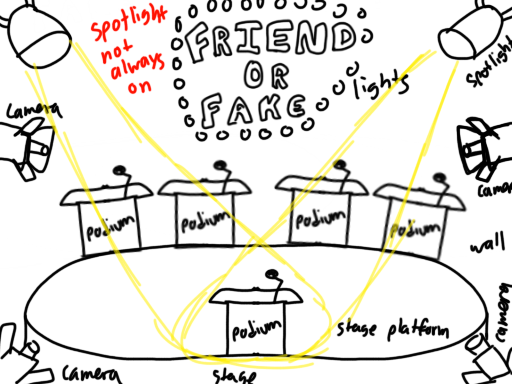 spotlight
not
always
on
FRIEND
OR
FAKE
lights
spotlight
camera
camera
podium
podium
podium
podium
wall
podium
stage platform
camera
camera
stage